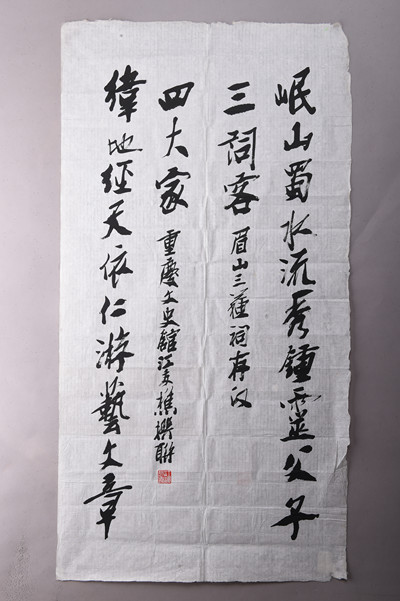 岷山蜀水流秀鍾靈父子
三詞客
眉山三蘓祠存
緯地經天依仁游藝文章
四大家
重慶文史館江友樵撰聯